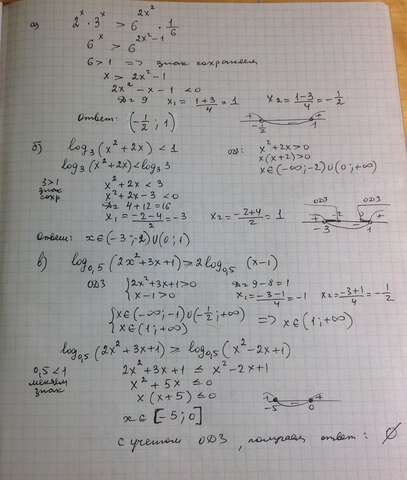 а) 2^x · 3^x > 6^{2x^2} · 1/6
6^x > 6^{2x^2-1}
6 > 1 => знак сохраняем
x > 2x^2 - 1
2x^2 - x - 1 < 0
D = 9 x₁ = (1+3)/4 = 1 x₂ = (1-3)/4 = -1/2
Ответ: (-1/2; 1)
+ - + -1/2 1
б) log₃(x^2+2x) < 1 ОДЗ: x^2+2x>0
x(x+2)>0
log₃(x^2+2x) < log₃3 x∈(-∞;-2)∪(0;+∞)
3>1 знак сохр x^2+2x < 3
x^2+2x-3 < 0
D = 4+12 = 16
x₁ = (-2-4)/2 = -3 x₂ = (-2+4)/2 = 1
ОДЗ ОДЗ
+ -3 -2 0 1 +
Ответ: x∈(-3;-2)∪(0;1)
в) log₀,₅(2x^2+3x+1) ≥ 2log₀,₅(x-1)
ОДЗ {2x^2+3x+1>0 D = 9-8=1
x-1>0 x₁ = (-3-1)/4 = -1 x₂ = (-3+1)/4 = -1/2
{x∈(-∞;-1)∪(-1/2;+∞)
x∈(1;+∞) => x∈(1;+∞)
log₀,₅(2x^2+3x+1) ≥ log₀,₅(x^2-2x+1)
0,5<1 меняем знак 2x^2+3x+1 ≤ x^2-2x+1
x^2+5x ≤ 0
x(x+5) ≤ 0
+ -5 - 0 +
x∈[-5;0]
с учетом ОДЗ, получаем ответ: ∅